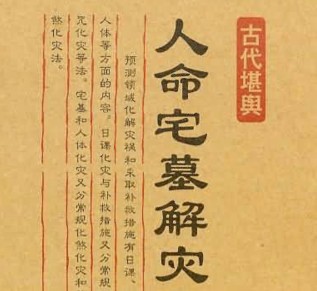 古代堪舆
人命宅墓解灾
预测领域化解灾祸和采取补救措施有日课、
人体等方面的内容。日课化灾与补救措施又分常规
咒化灾等法。宅墓和人体化灾又分常规化煞化灾和
煞化灾法。